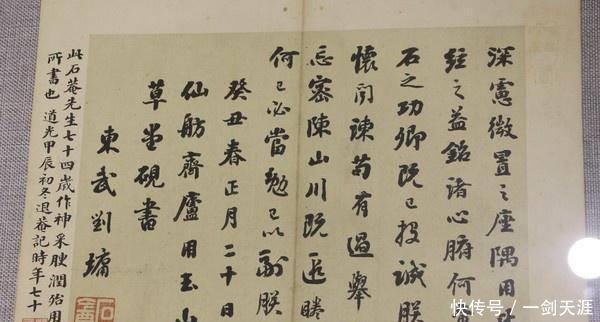 深憲微置之座隅用
經之益銘諸心腑何
石之功卿既已投誠朕
懷聞諫苟有過舉
忘密陳山川既遐睠
何已必當勉已以副朕
癸丑春正月二十日
仙舫齋廬用玉山
草堂硯書
東武劉墉
此石菴先生七十四歲作神采腴潤殆用
所書也 道光甲辰初冬退菴記時年七十
快传号/一剑天涯